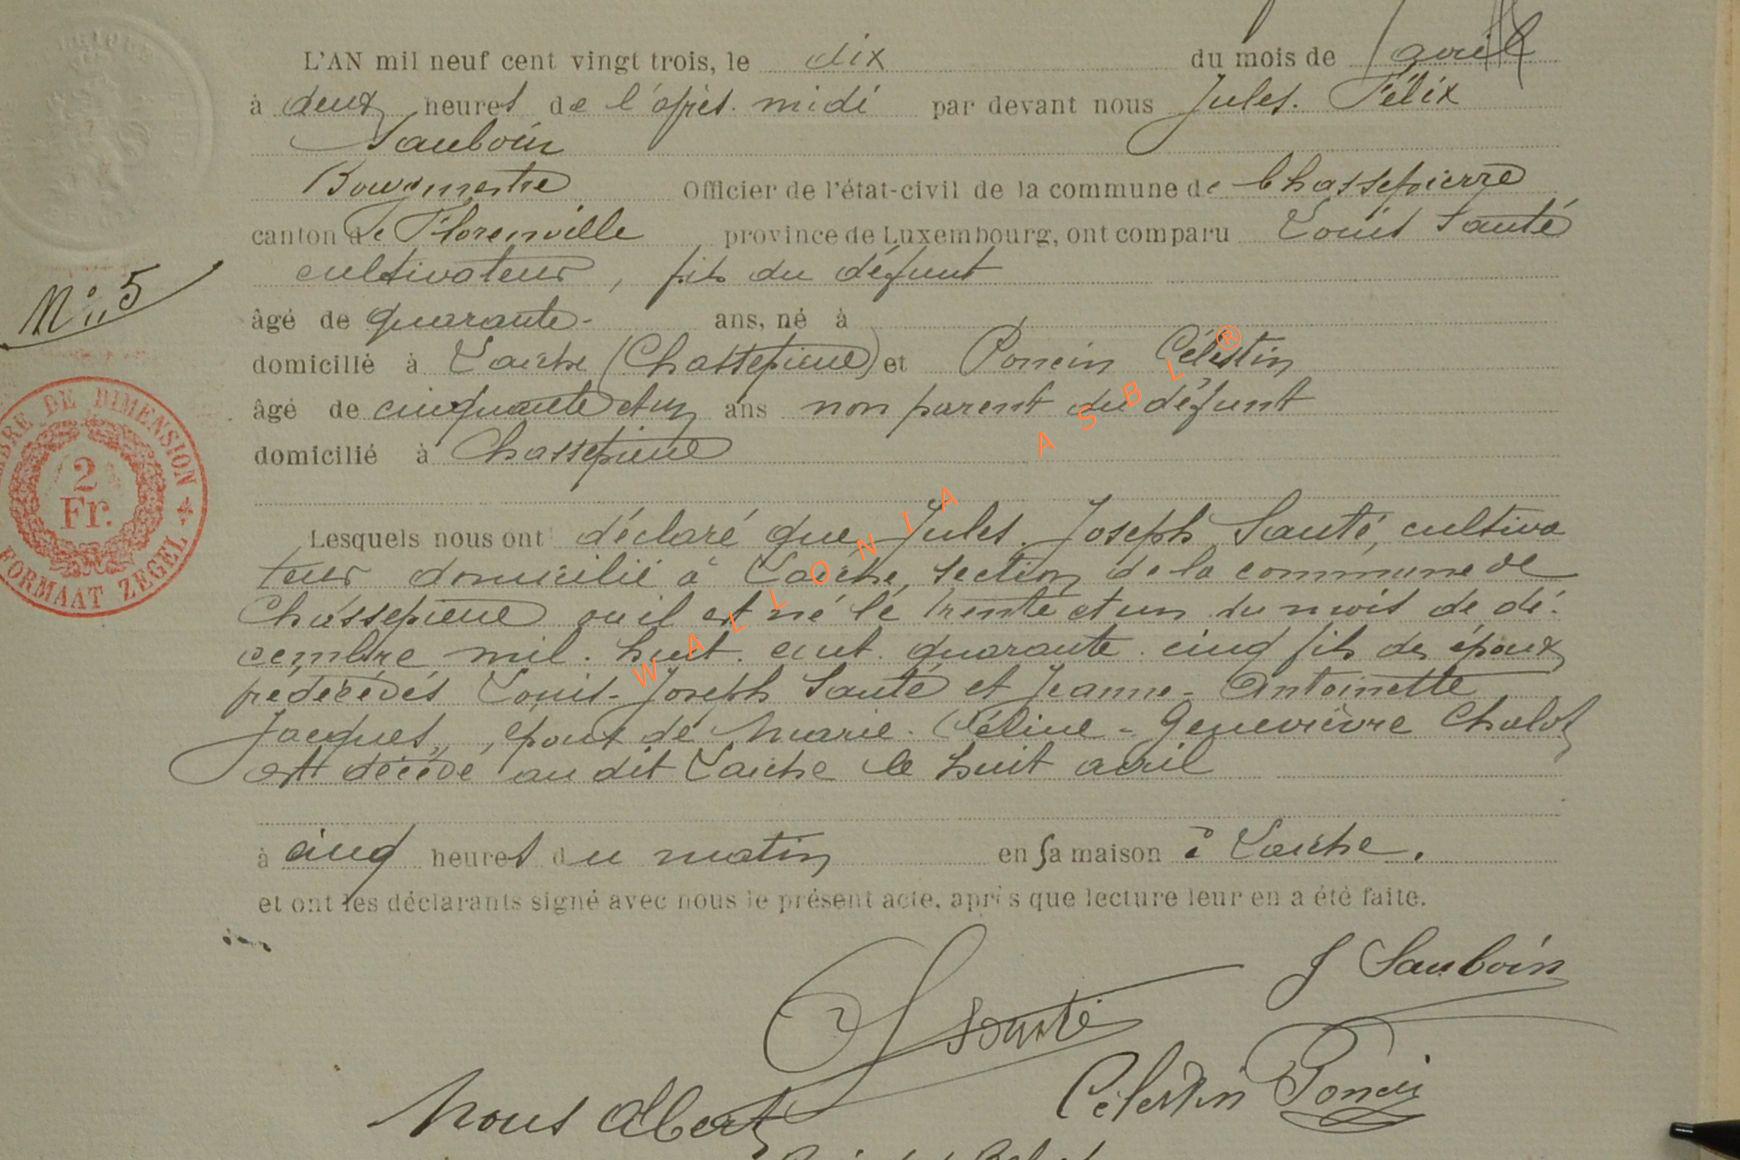 L'AN mil neuf cent vingt trois, le dix du mois de avril
à deux heures de l'après-midi par devant nous Jules. Félix
Sauboin
Bourgmestre Officier de l'état-civil de la commune de Chassepierre
canton de Florenville province de Luxembourg, ont comparu Louis Santé
cultivateur, fils du défunt
N° 5
âgé de quarante- ans, né à
domicilié à Laiche (Chassepierre) et Poncin Célestin
âgé de cinquante et un ans non parent du défunt
domicilié à Chassepierre
TIMBRE DE DIMENSION
2
Fr.
FORMAAT ZEGEL
Lesquels nous ont déclaré que Jules. Joseph Santé, cultiva
teur domicilié à Laiche, section de la commune de
Chassepierre où il est né le trente et un du mois de dé-
cembre mil. huit. cent. quarante. cinq fils des époux
prédécédés Louis-Joseph Santé et Jeanne-Antoinette
Jacques, époux de Marie. Céline-Geneviève Chalot
est décédé au dit Laiche le huit avril
à cinq heures du matin en sa maison à Laiche.
et ont les déclarants signé avec nous le présent acte, après que lecture leur en a été faite.
J Sauboin
L Santé
Célestin Poncin
Nous Albert
WALLONIA ASBL ®